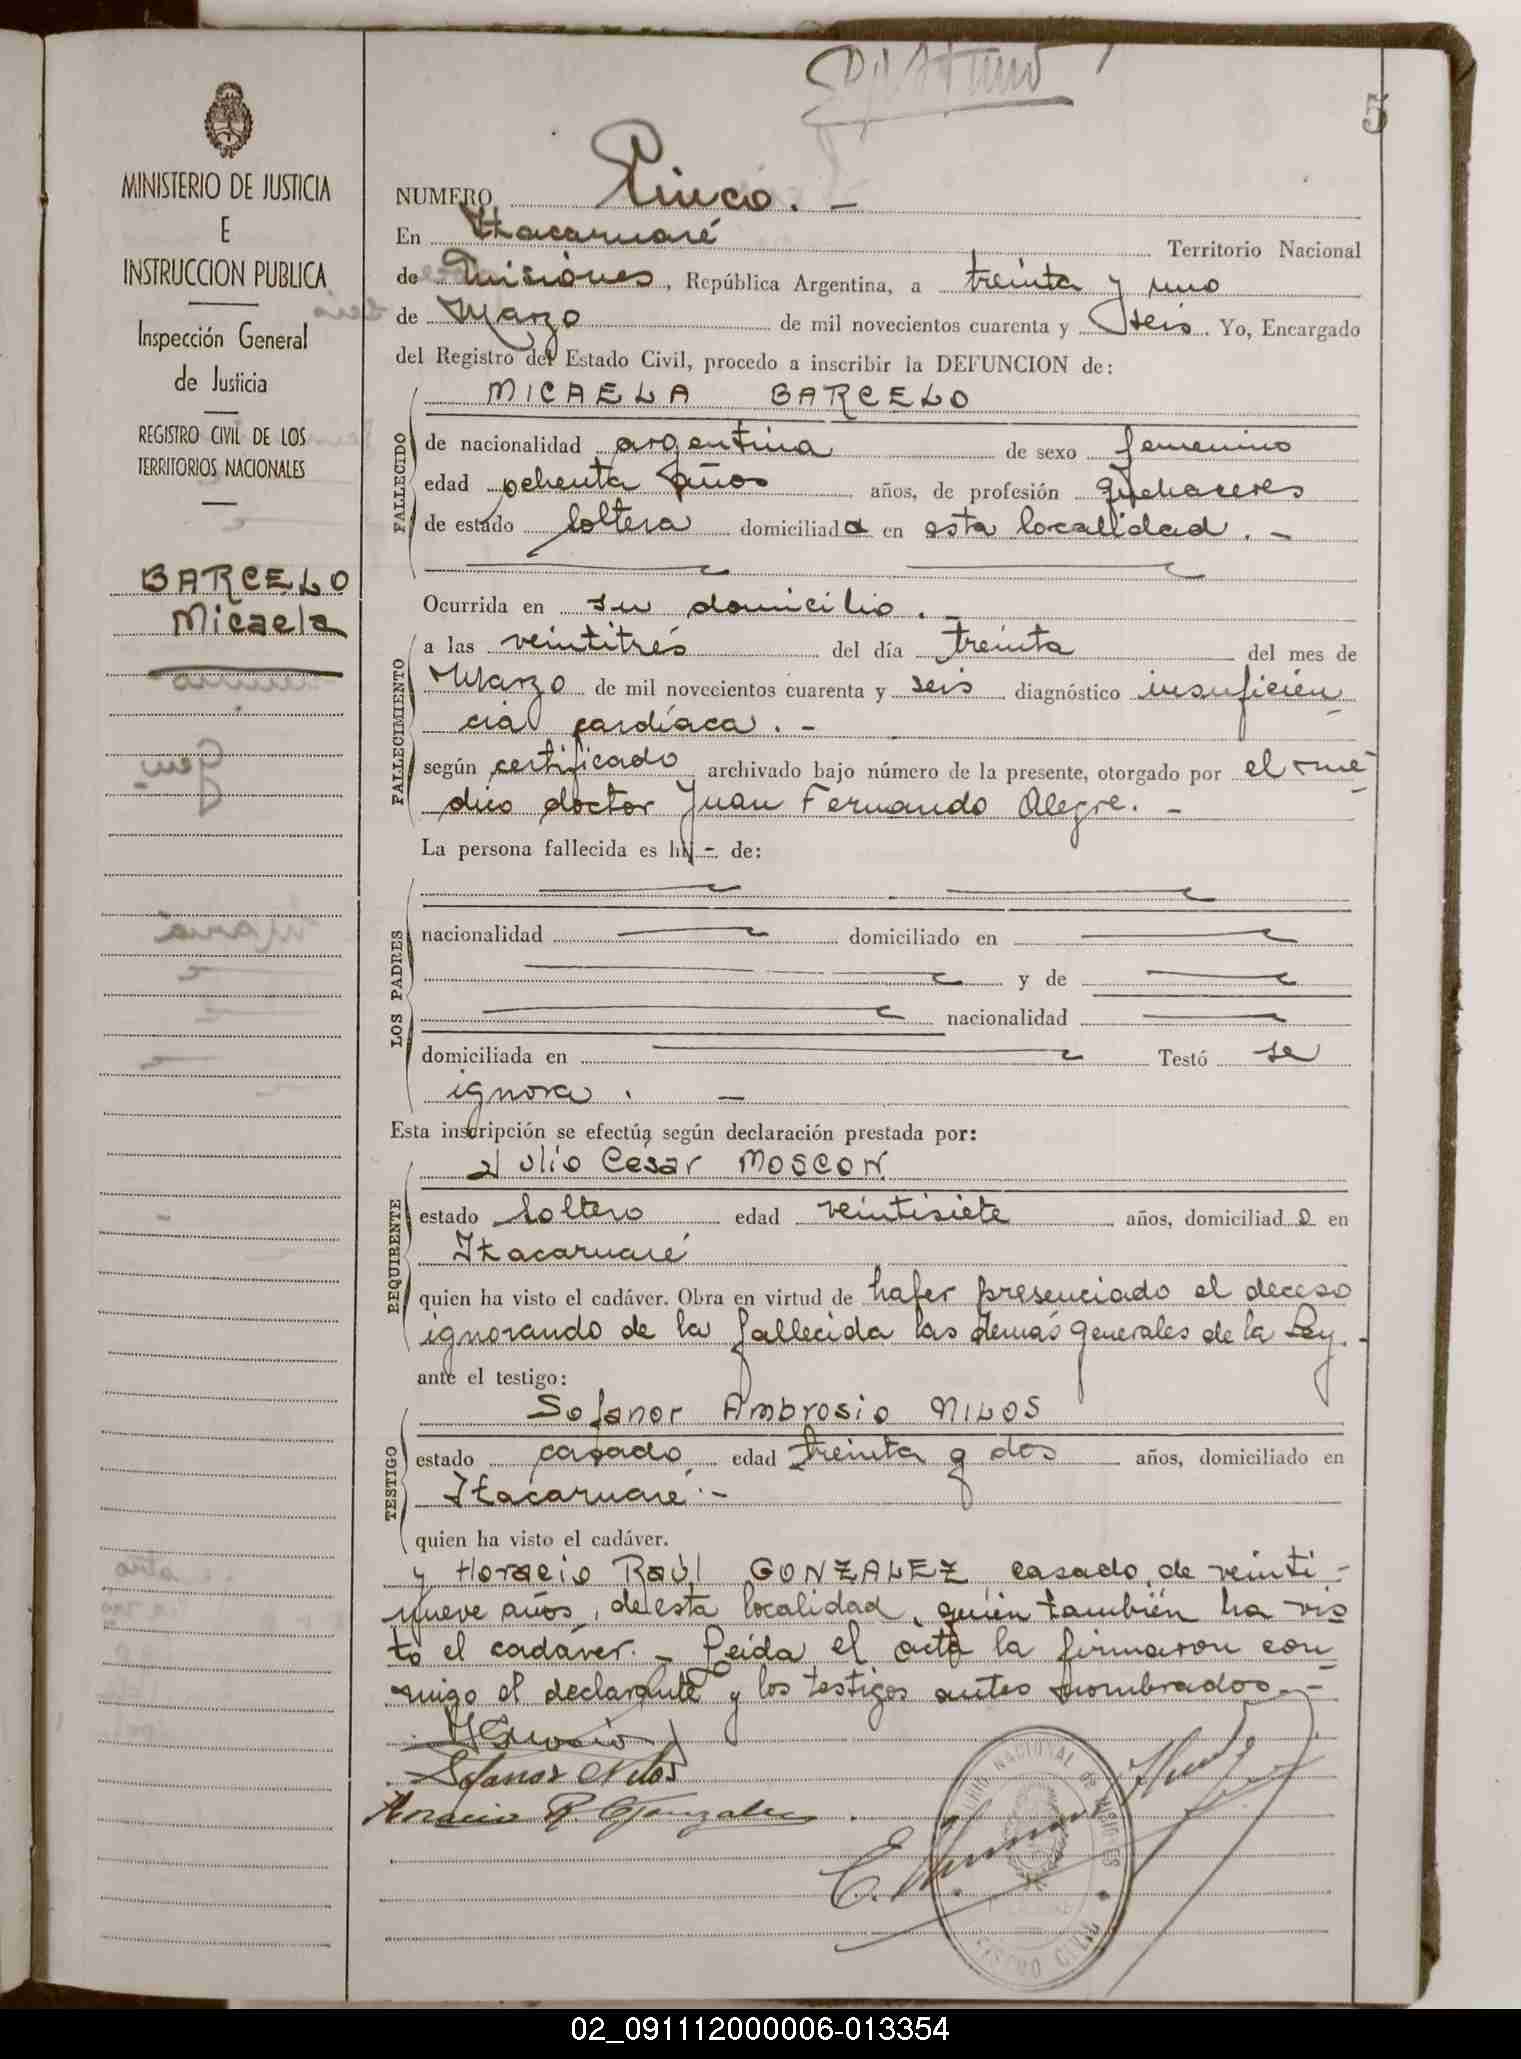 5
MINISTERIO DE JUSTICIA
E
INSTRUCCION PUBLICA
Inspección General
de Justicia
REGISTRO CIVIL DE LOS
TERRITORIOS NACIONALES
BARCELO
Micaela
NUMERO Cinco. -
En Itacaruaré Territorio Nacional
de Misiones, República Argentina, a treinta y uno
de Marzo de mil novecientos cuarenta y seis. Yo, Encargado
del Registro del Estado Civil, procedo a inscribir la DEFUNCION de:
MICAELA BARCELO
FALLECIDO
de nacionalidad argentina de sexo femenino
edad ochenta años años, de profesión quehaceres
de estado soltera domiciliada en esta localidad. -
Ocurrida en su domicilio.
FALLECIMIENTO
a las veintitrés del día treinta del mes de
Marzo de mil novecientos cuarenta y seis diagnóstico insuficien
cia cardíaca. -
según certificado archivado bajo número de la presente, otorgado por el mé
dico doctor Juan Fernando Alegre. -
La persona fallecida es hij - de:
LOS PADRES
nacionalidad domiciliado en
y de
nacionalidad
domiciliada en Testó se
ignora. -
Esta inscripción se efectúa según declaración prestada por:
REQUIRENTE
Julio César MOSCON
estado soltero edad veintisiete años, domiciliado en
Itacaruaré
quien ha visto el cadáver. Obra en virtud de haber presenciado el deceso
ignorando de la fallecida las demás generales de la Ley. -
ante el testigo:
TESTIGO
Sofanor Ambrosio NILOS
estado casado edad treinta y dos años, domiciliado en
Itacaruaré. -
quien ha visto el cadáver.
y Horacio Raúl GONZALEZ casado, de veinti-
nueve años, de esta localidad, quien también ha vis
to el cadáver. - Leída el acta la firmaron con
migo el declarante y los testigos antes nombrados. -
Sofanor Nilos
Horacio R. Gonzalez
02_091112000006-013354